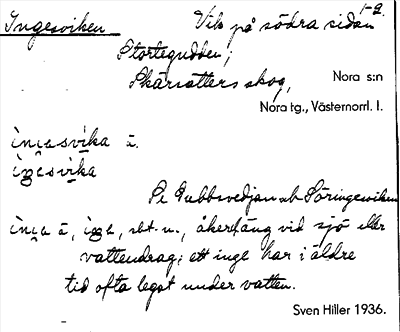 Ingesviken Vik på södra sidan 1-2.
Stortegudden;
Skärsätters skog,
Nora s:n
Nora tg., Västernorrl. l.
Se Gubbsvedjan ub Söringesviken
sbt. n., åkerhäng vid sjö eller
vattendrag; ett inge har i äldre
tid ofta legat under vatten.
Sven Hiller 1936.